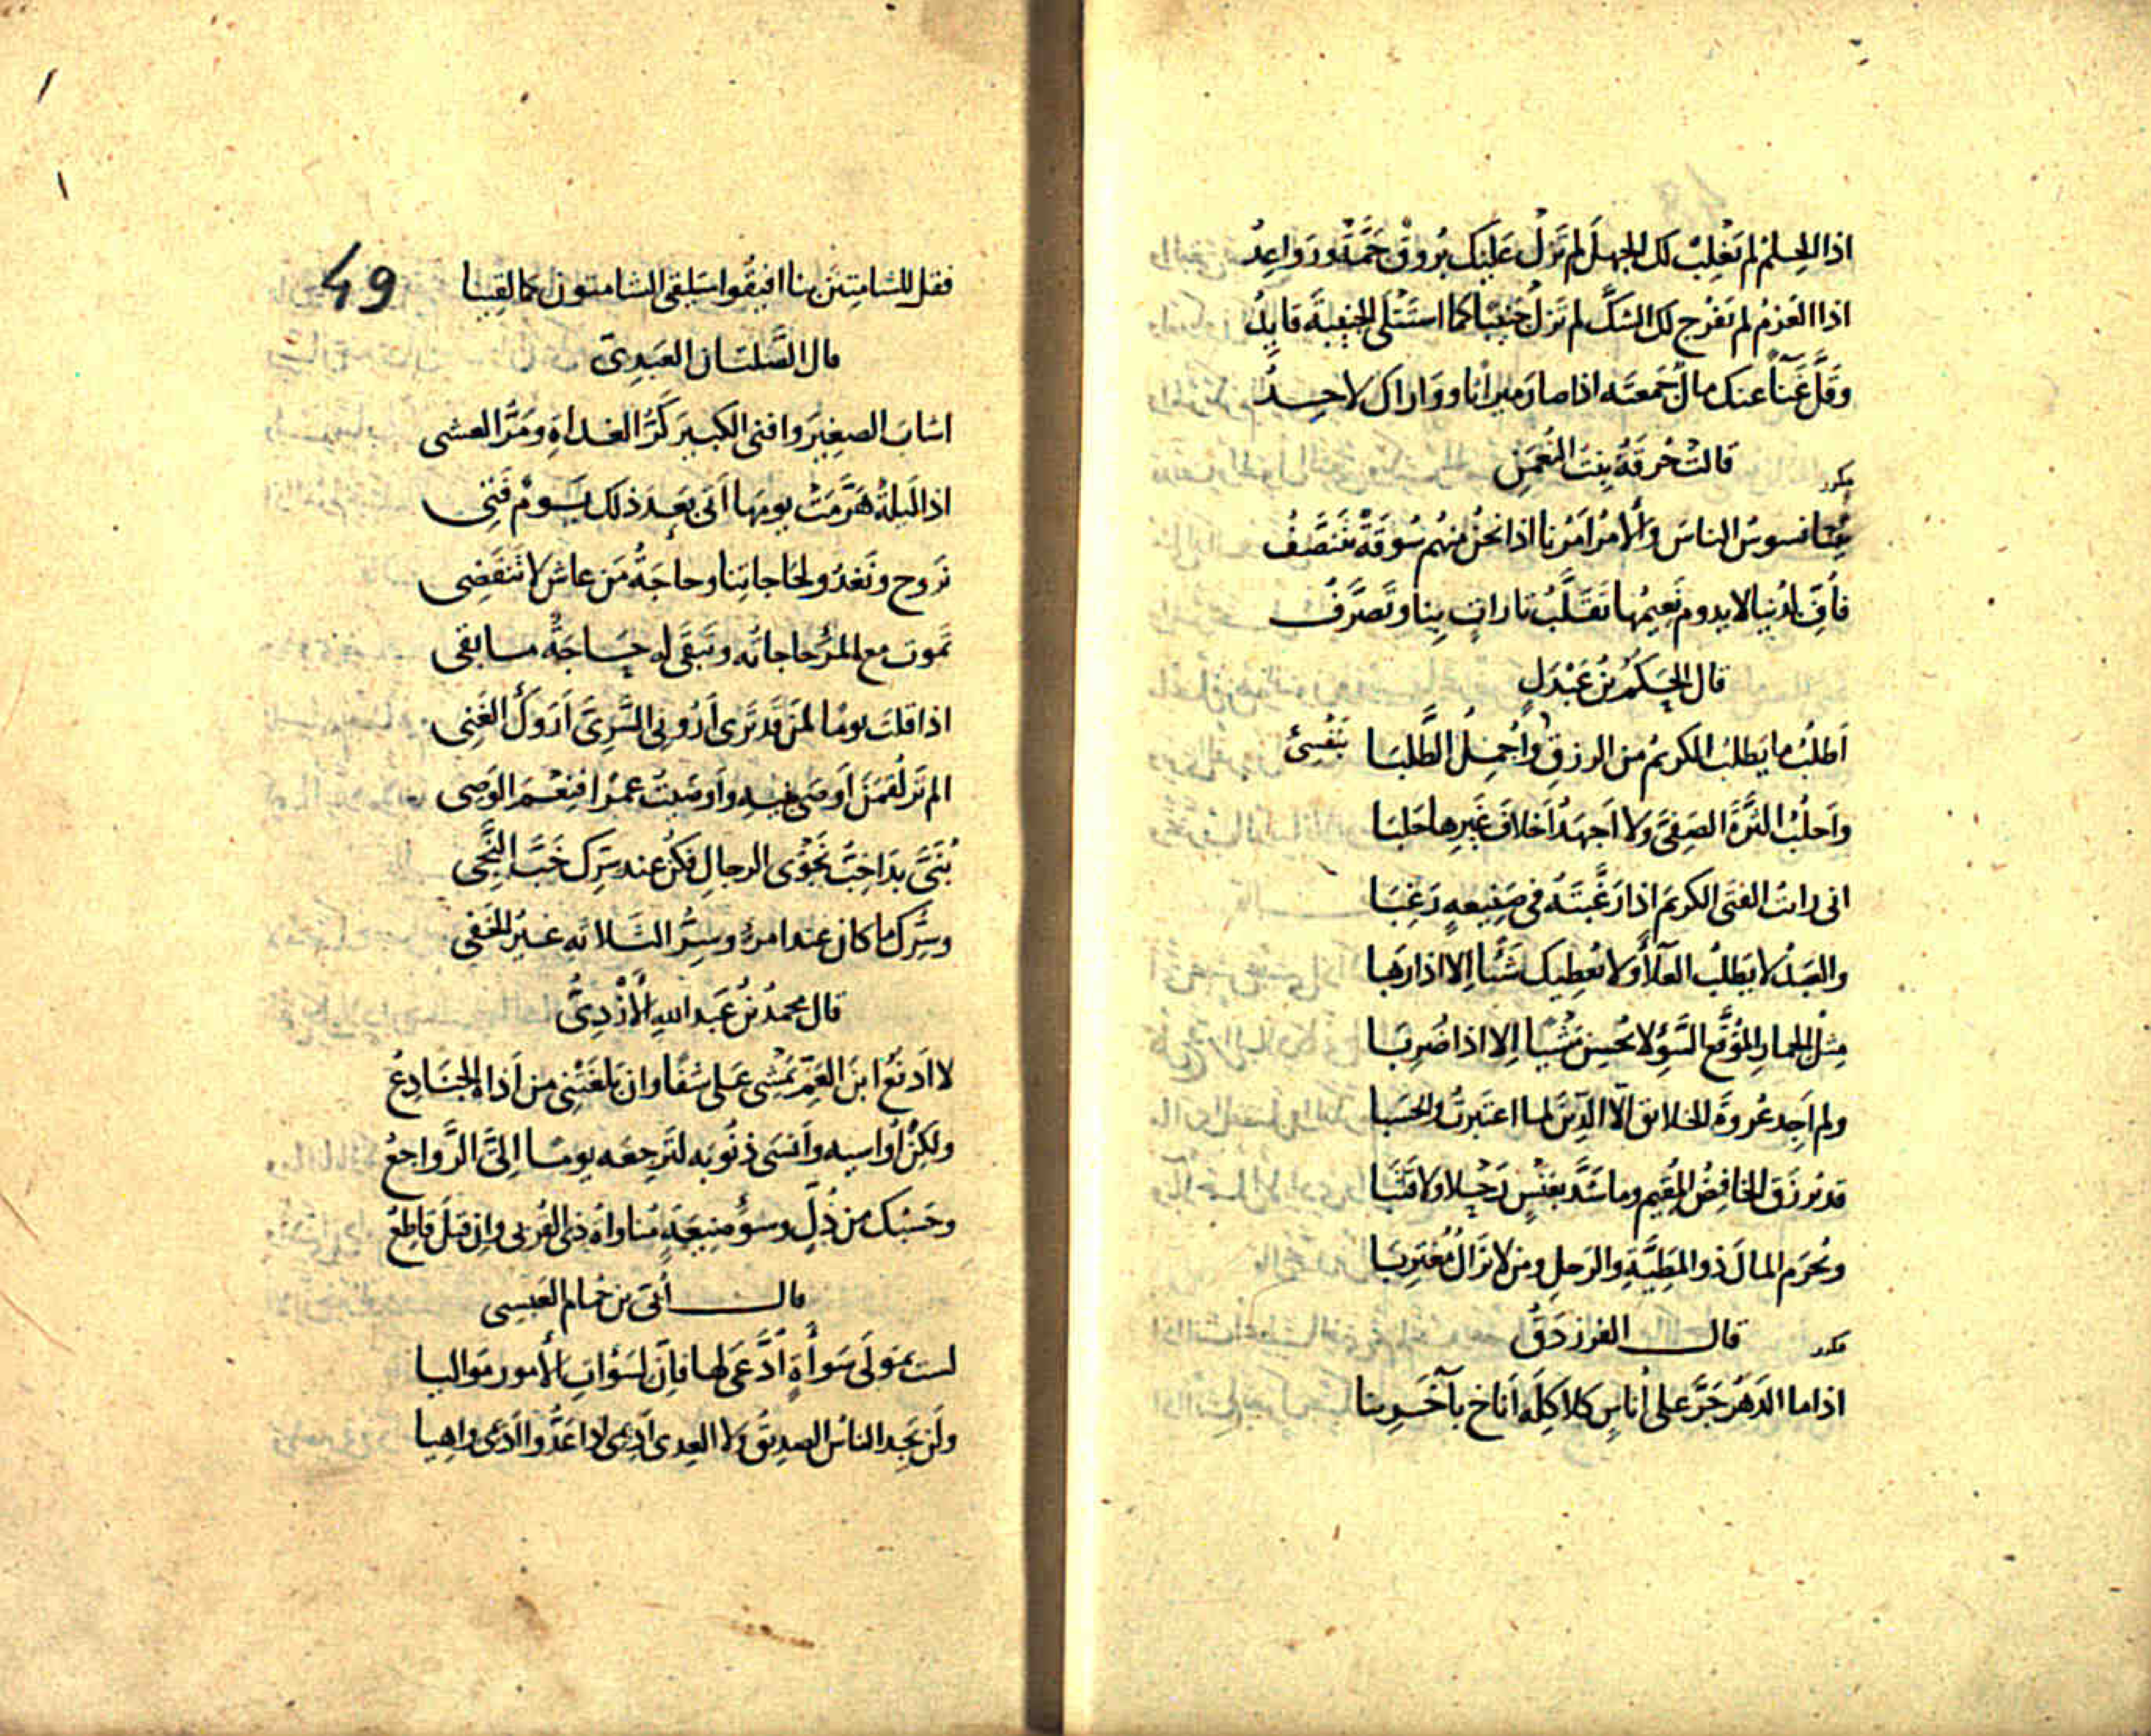 اذا الحِلمُ لم يَغْلِبْ لك الجهلَ لم تَزلْ عَليَك بُروقٌ جَمَّةٌ ورَواعِدُ
اذا العَزمُ لم تفرُج لك الشكَّ لم تزلْ جَنِيبًا كما استَتْلَى الجَنِيبَةَ قايِدُ
وقَلَّ غَنآءً عنك مالٌ جَمعتَه اذا صار ميراثا وواراك لاحِدُ
مكرر
قالت حُرَقَةُ بِنتُ النُعمٰنِ
بَيْنا نسوسُ الناسَ والأمرُ امرُنا اذا نحنُ منهُم سُوقَةٌ نتَنَصَّفُ
فأُفٍّ لدُنيا لا يدوم نَعِيمُها تَقَلَّبُ تاراتٍ بِنا وتَصَرَّفُ
قال الحَكَمُ بْنُ عَبْدَلٍ
اَطلُبُ ما يَطلبُ الكريمُ من الرزقِ بنَفْسِى واُجمِلُ الطَّلَبا
واَحلُبُ الثَّرَّةَ الصَفِىَّ ولا اَجهَدُ اَخلافَ غَيرِها حَلبَا
انى رايتُ الفتَى الكريمَ اذا رَغَّبتَه فى صَنِيعهٍ رَغِبَا
والعَبدُ لا يَطلُبُ العَلآءَ ولا يُعطِيك شَيْئًا اِلا اذا رَهِبا
مِثلُ الحمارِ المُوَقَّعِ السَّوءِ لا يُحسِن مَشْيًا اِلا اذا ضُرِبَا
ولم اَجِد عُروةَ الخلائق الاّ الدِّينَ لما اعتبرتُ والحسَبا
قد يُرزَق الخافِضُ المُقِيم وما شَدَّ بعَنْسٍ رَحْلا ولا قتَبَا
ويُحرَم المالَ ذو المَطِيَّةِ والرَحلِ ومن لا يزَالُ مُغتَرِبَا
مكرر
قال الفرزدَقُ
اذا ما الدَهرُ جَرَّ على اُناسٍ كلاكِلَه اَناخ بآخَرِينا
49
فقل للشامِتِينَ بنا افيقُوا سَيلقى الشامتون كما لقِينا
قال الصَّلَتان العَبدِىّ
اشابَ الصغِيرَ وافنى الكبيرَ كَرُّ الغداةِ ومَرُّ العشى
اذا لَيلةٌ هَرَّمَتْ يومَها اَتَى بَعدَ ذلك يَومٌ فَتِى
نروح ونَغدُو لحَاجاتِنا وحاجَةُ مَن عاش لا تَنقَضِى
تموت مع المرْءِ حاجاتُه وتَبقَى له حَاجَةٌ ما بقى
اذا قلتَ يومًا لمَن قَد تَرَى اَرُونِى السَّرِىَّ اَرَوكَ الغَنِى
الم تَر لُقمٰنَ اَوصَى بنِيه واَوصَيتُ عَمرًا فنِعْمَ الوَصِى
بُنَىَّ بَدَا خِبُّ نَجْوَى الرجالِ فكُن عند سِرِّك خَبَّ النَّجِى
وسِرُّك ما كان عند امرئ وسِرُّ الثَلاثه غيرُ الخَفِى
قال محمدُ بْنُ عَبدِ اللهِ الأَزْدِىُّ
لا اَدفَعُ ابنَ العَمِّ يَمْشِى عَلى شَفًا وان بَلَغَتْنِى من اَذاه الجَنَادِعُ
ولكِنْ اُواسِيه واَنسَى ذنُوبَه لتَرجِعَه يومًا اِلىَّ الرَّواجِعُ
وحَسْبُك من ذُلٍّ وسوءِ صَنِيعَةٍ مُناواةُ ذِى القُربى وان قيلَ قاطِعُ
قال اُبَىّ بن حُمام العَبسى
لست بمَولَى سَوأَةٍ اُدَّعَى لها فاِنّ لسَوْاتِ الأمور مَواليا
ولَن يَجِد الناسُ الصديقُ ولا العِدى اَدِيمى اذا عَدُّوا اَديمى واهِيا